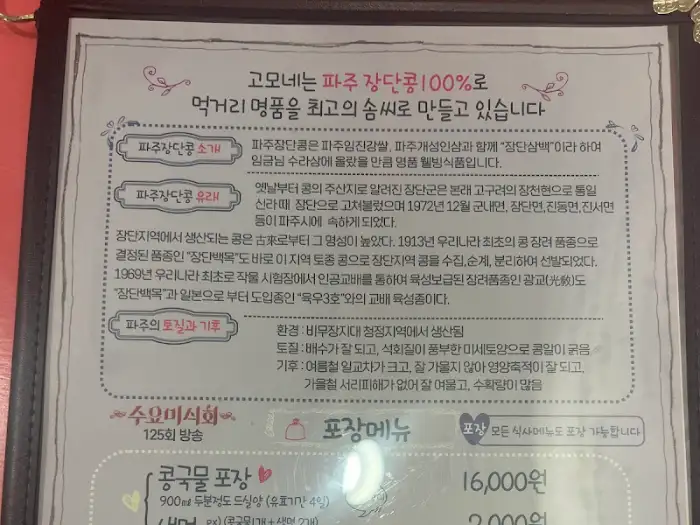 고모네는 파주 장단콩100%로
먹거리 명품을 최고의 솜씨로 만들고 있습니다
파주장단콩 소개
파주장단콩은 파주임진강쌀, 파주개성인삼과 함께 "장단삼백"이라 하여
임금님 수라상에 올랐을 만큼 명품 웰빙식품입니다.
파주장단콩 유래
옛날부터 콩의 주산지로 알려진 장단군은 본래 고구려의 장천현으로 통일
신라때 장단으로 고쳐불렸으며 1972년 12월 군내면, 장단면,진동면,진서면
등이 파주시에 속하게 되었다.
장단지역에서 생산되는 콩은 古來로부터 그 명성이 높았다. 1913년 우리나라 최초의 콩 장려 품종으로
결정된 품종인 "장단백목"도 바로 이 지역 토종 콩으로 장단지역 콩을 수집,순계, 분리하여 선발되었다.
1969년 우리나라 최초로 작물 시험장에서 인공교배를 통하여 육성보급된 장려품종인 광교(光敎)도
"장단백목"과 일본으로 부터 도입종인 "육우3호"와의 교배 육성종이다.
파주의 토질과 기후
환경 : 비무장지대 청정지역에서 생산됨
토질 : 배수가 잘 되고, 석회질이 풍부한 미세토양으로 콩알이 굵음
기후 : 여름철 일교차가 크고, 잘 가물지 않아 영양축적이 잘 되고,
가을철 서리피해가 없어 잘 여물고, 수확량이 많음
수요미식회
125회 방송
포장메뉴
포장 모든 식사메뉴도 포장 가능합니다
콩국물 포장
16,000원
900㎖ 두분정도 드실양 (유효기간 4일)
2,000원